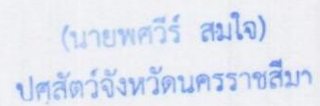 (นายพศวีร์ สมใจ)
ปศุสัตว์จังหวัดนครราชสีมา